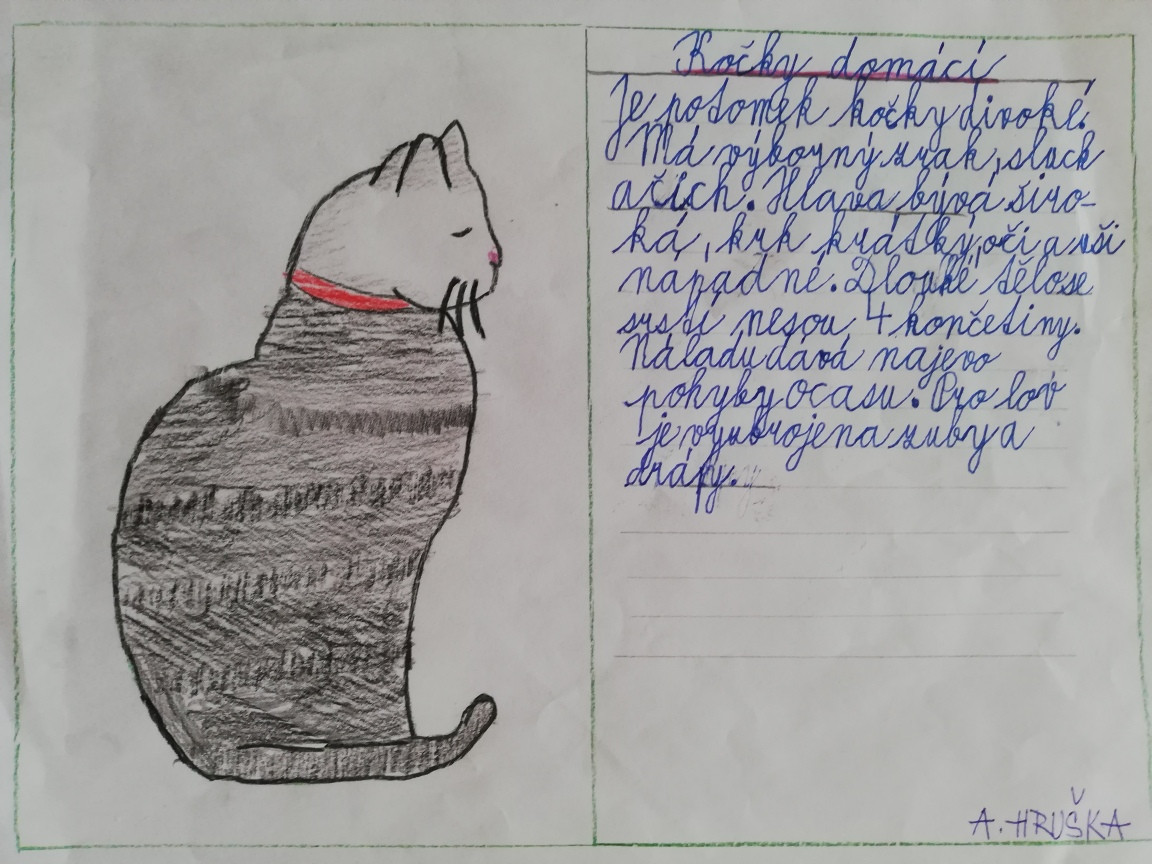 Kočky domácí
Je potomek kočky divoké.
Má výborný zrak, sluch
a čich. Hlava bývá širo-
ká, krk krátký, oči a uši
nápadné. Dlouhé tělo se
srstí nesou 4 končetiny.
Náladu dává najevo
pohyby ocasu. Pro lov
je vyzbrojena zuby a
drápy.
A. HRUŠKA